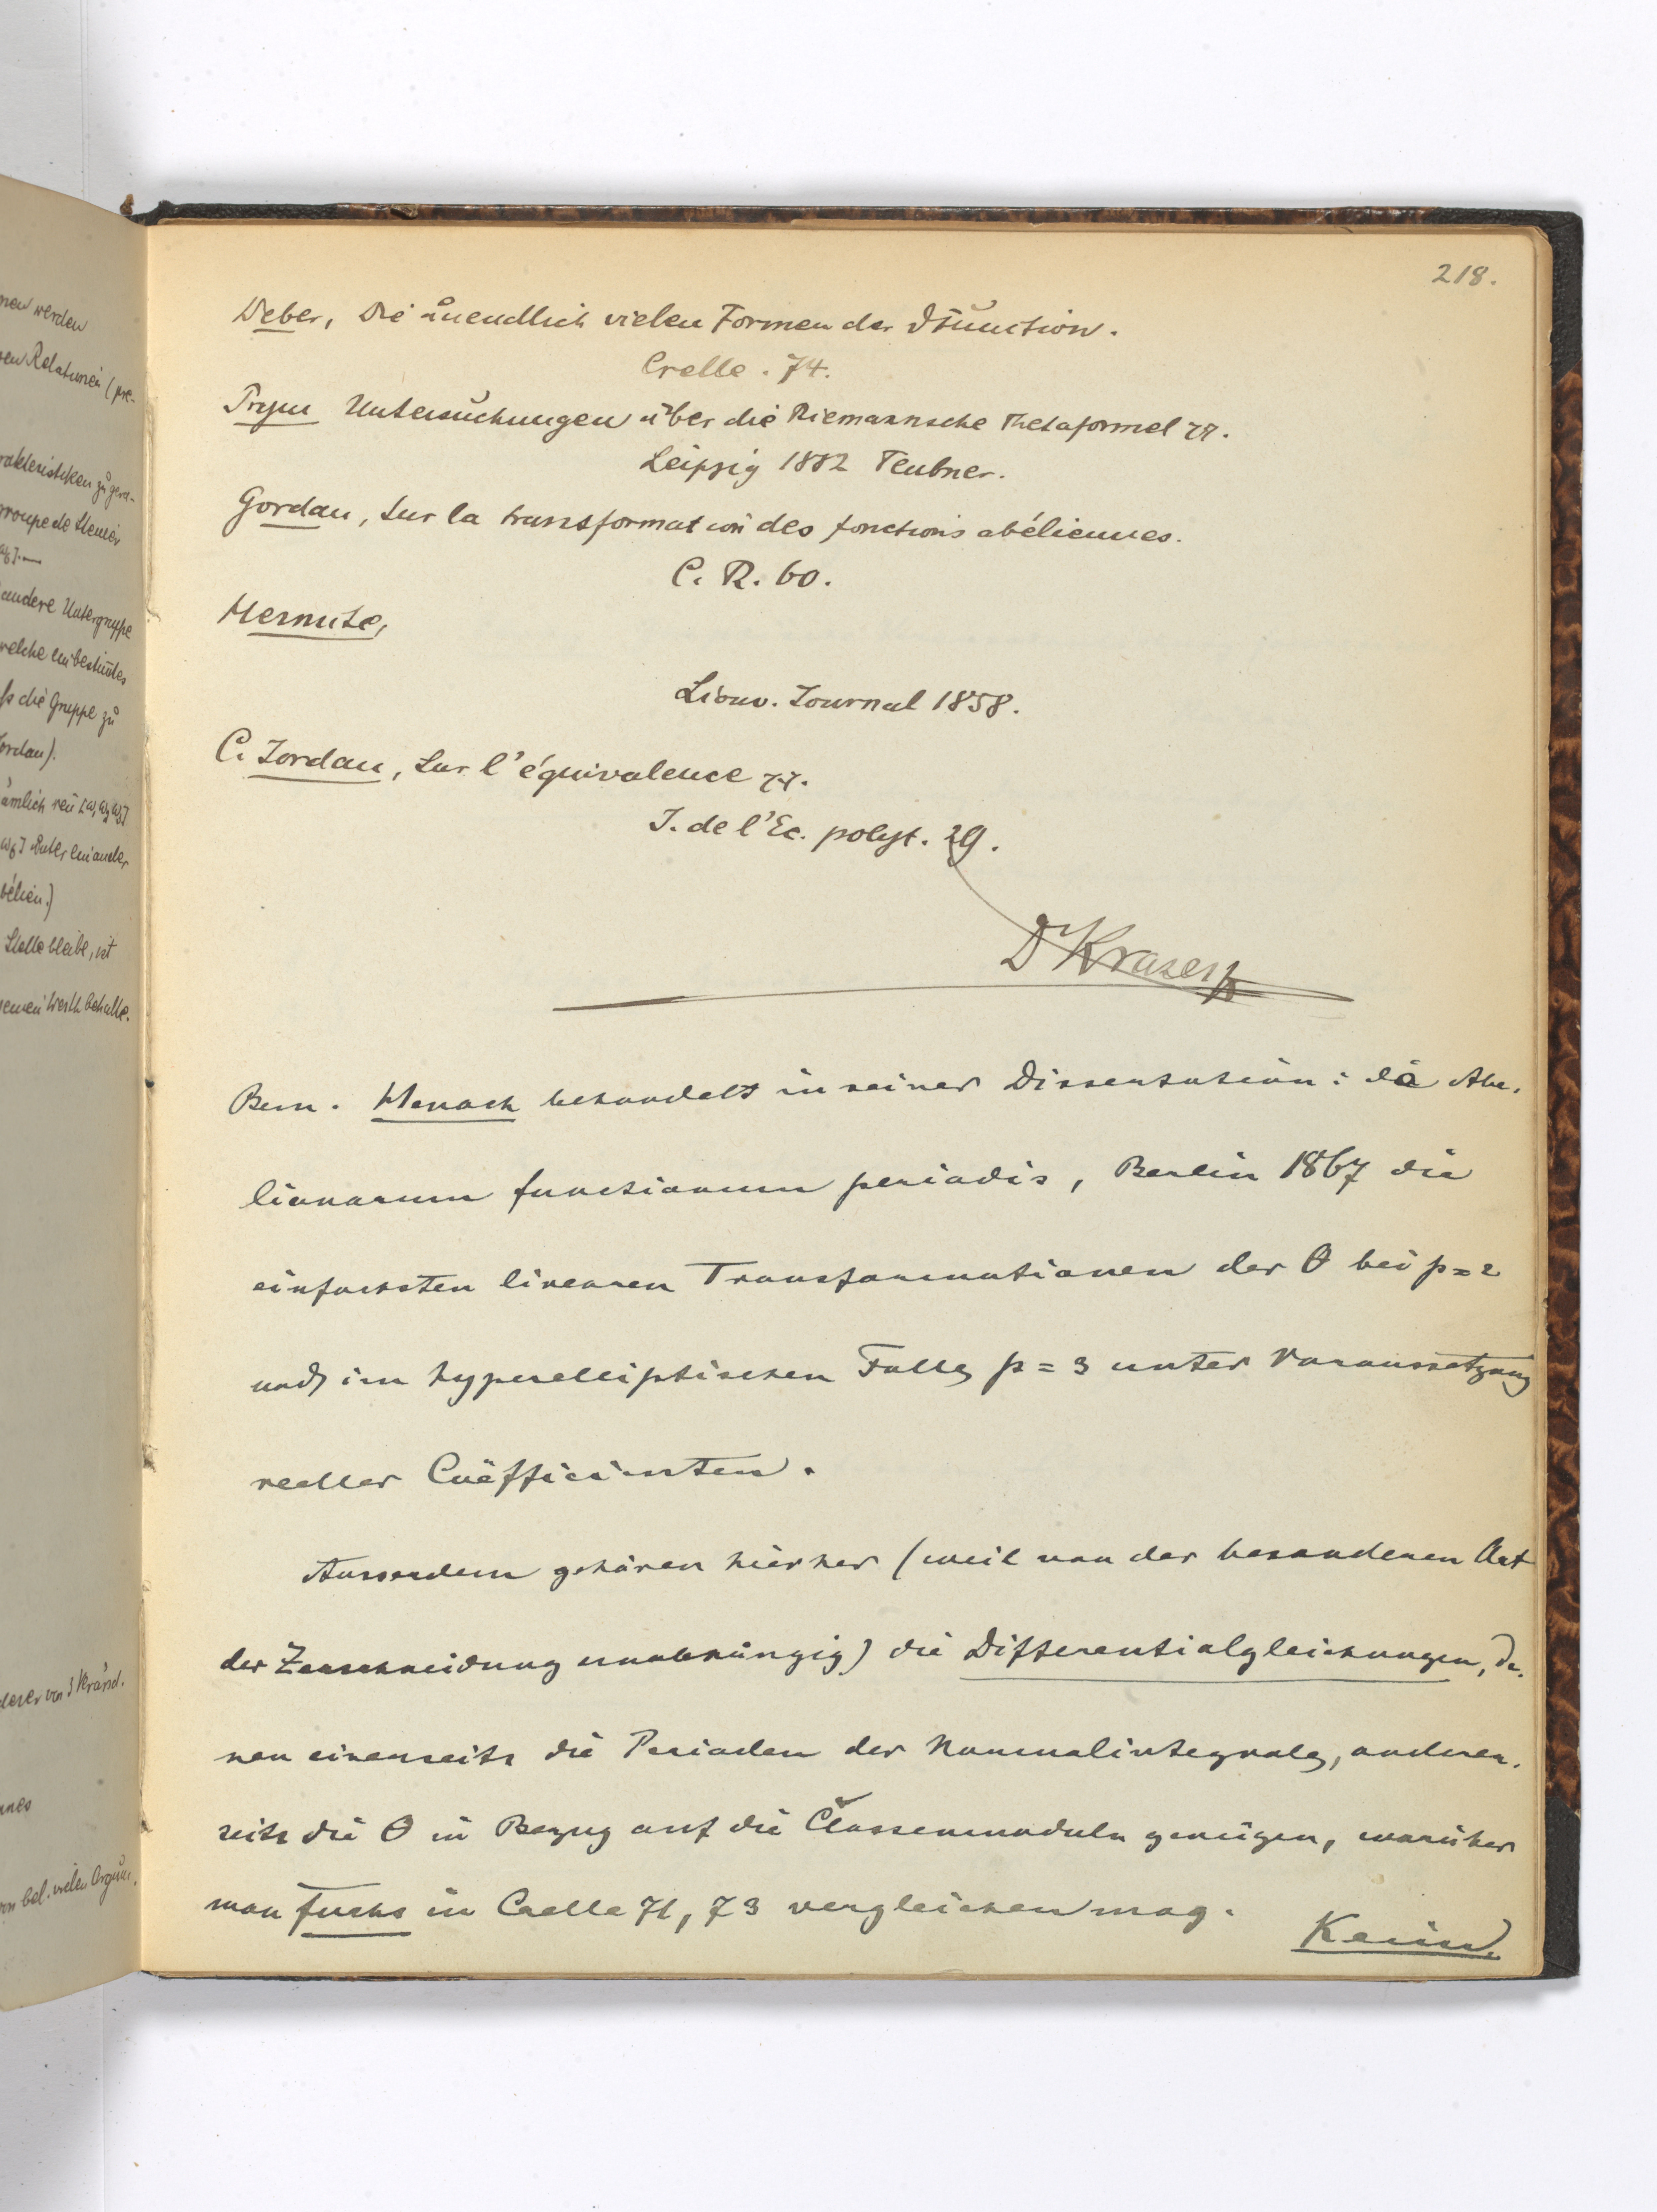 218.
Weber, Die unendlich vielen Formen der ϑfunction.
Crelle. 74.
Prym Untersuchungen über die Riemannsche Thetaformel
Leipzig 1882 Teubner.
Gordan, Sur la transformation des fonctions abéliennes.
C. R. 60.
Hermite,
Liouv. Journal 1858.
C. Jordan, Sur l'équivalence
J. de l'Ec. polyt. 29.
Dr Krazer
Bem. Henoch behandelt in seiner Dissertation: de Abe-
lianarum functionum periodis, Berlin 1867 die
einfachsten linearen Transformationen der θ bei p=2
und im hyperelliptischen Falle p=3 unter Voraussetzung
reeller Coëfficienten.
Ausserdem gehören hierher (weil von der besonderen Art
der Zerschneidung unabhängig) die Differentialgleichungen, de-
nen einerseits die Perioden der Normalintegrale, anderer-
seits die θ in Bezug auf die Classenmoduln genügen, worüber
man Fuchs in Crelle 71, 73 vergleichen mag.
nen werden
en Relationen (pre-
rakteristiken zu
groupe de Steiner
andere Untergruppe
welche unbestimtes
ss die Gruppe zu
ordan).
ämlich
unter einander
bélien.)
Stelle bleibe, ist
seinen Werth behalte.
derer von 3 Veränd.
nnes
von bel. vielen Argum.